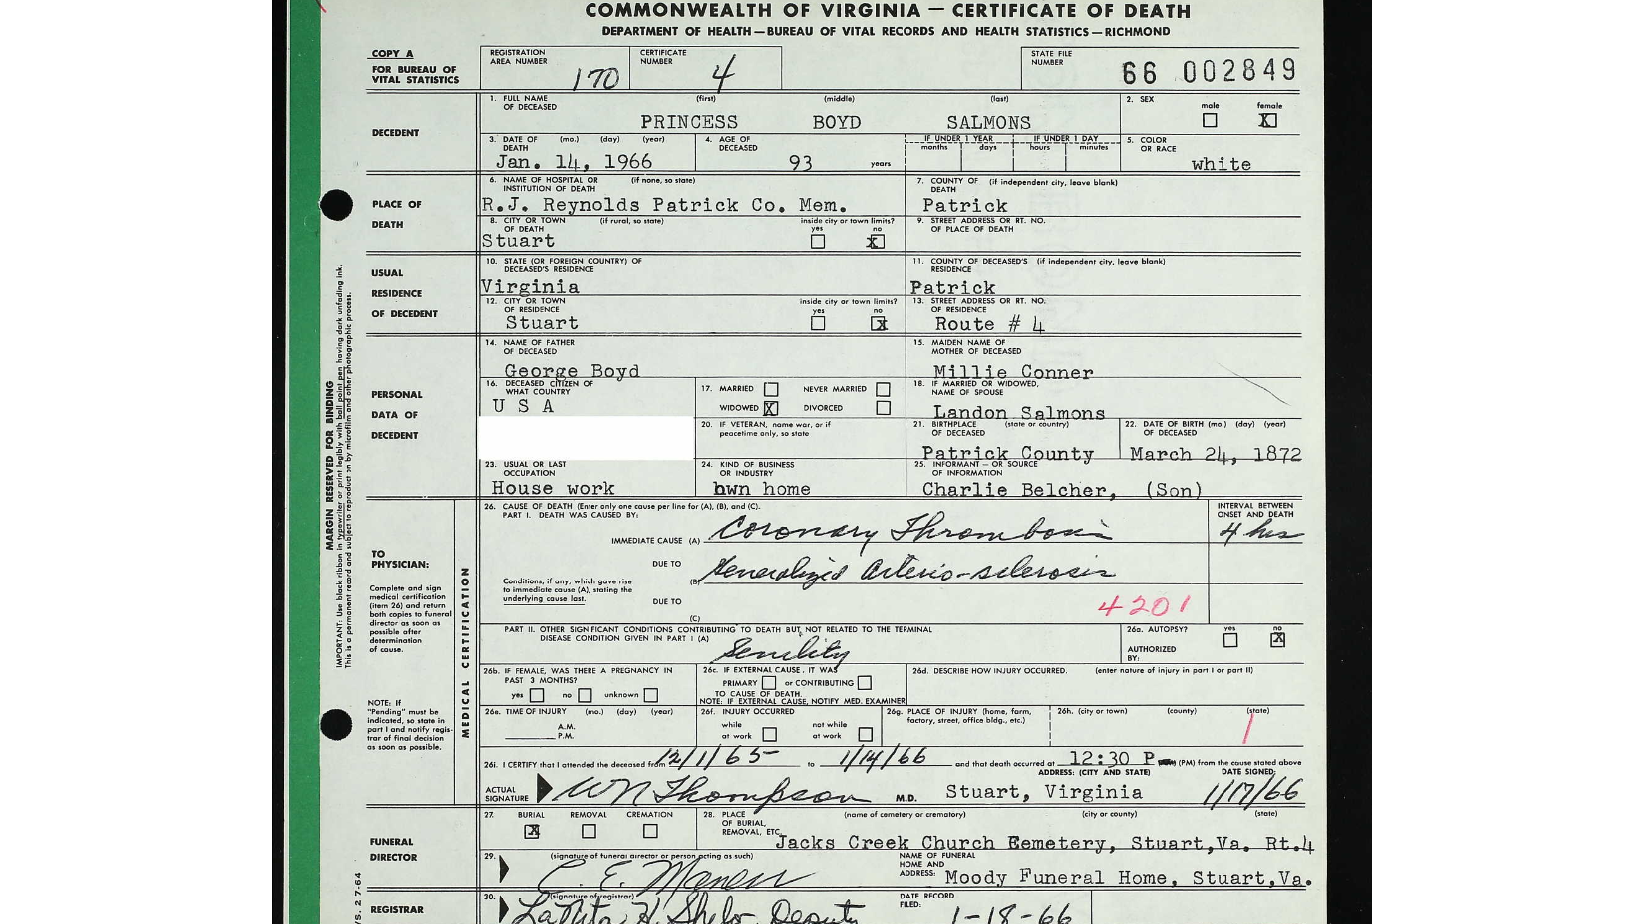 COMMONWEALTH OF VIRGINIA — CERTIFICATE OF DEATH
DEPARTMENT OF HEALTH—BUREAU OF VITAL RECORDS AND HEALTH STATISTICS—RICHMOND
COPY A
FOR BUREAU OF
VITAL STATISTICS
REGISTRATION
AREA NUMBER
170
CERTIFICATE
NUMBER
4
STATE FILE
NUMBER
66 002849
DECEDENT
1. FULL NAME
OF DECEASED
(first) (middle) (last)
PRINCESS BOYD SALMONS
2. SEX
male female
X
3. DATE OF (mo.) (day) (year)
DEATH
Jan. 14, 1966
4. AGE OF
DECEASED
93 years
IF UNDER 1 YEAR IF UNDER 1 DAY
months days hours minutes
5. COLOR
OR RACE
white
PLACE OF
DEATH
6. NAME OF HOSPITAL OR (if none, so state)
INSTITUTION OF DEATH
R.J. Reynolds Patrick Co. Mem.
7. COUNTY OF (if independent city, leave blank)
DEATH
Patrick
8. CITY OR TOWN (if rural, so state)
OF DEATH
Stuart
inside city or town limits?
yes no
x
9. STREET ADDRESS OR RT. NO.
OF PLACE OF DEATH
USUAL
RESIDENCE
OF DECEDENT
10. STATE (OR FOREIGN COUNTRY) OF
DECEASED'S RESIDENCE
Virginia
11. COUNTY OF DECEASED'S (if independent city, leave blank)
RESIDENCE
Patrick
12. CITY OR TOWN
OF RESIDENCE
Stuart
inside city or town limits?
yes no
x
13. STREET ADDRESS OR RT. NO.
OF RESIDENCE
Route # 4
PERSONAL
DATA OF
DECEDENT
14. NAME OF FATHER
OF DECEASED
George Boyd
15. MAIDEN NAME OF
MOTHER OF DECEASED
Millie Conner
16. DECEASED CITIZEN OF
WHAT COUNTRY
U S A
17. MARRIED NEVER MARRIED
WIDOWED X DIVORCED
18. IF MARRIED OR WIDOWED,
NAME OF SPOUSE
Landon Salmons
20. IF VETERAN, name war, or if
peacetime only, so state
21. BIRTHPLACE (state or country)
OF DECEASED
Patrick County
22. DATE OF BIRTH (mo) (day) (year)
OF DECEASED
March 24, 1872
23. USUAL OR LAST
OCCUPATION
House work
24. KIND OF BUSINESS
OR INDUSTRY
hwn home
25. INFORMANT — OR SOURCE
OF INFORMATION
Charlie Belcher, (Son)
MARGIN RESERVED FOR BINDING
IMPORTANT: Use black ribbon in typewriter or print legibly with ball point pen having dark unfading ink.
This is a permanent record and subject to reproduction by microfilm and other photographic process.
TO
PHYSICIAN:
Complete and sign
medical certification
(item 26) and return
both copies to funeral
director as soon as
possible after
determination
of cause.
NOTE: If
"Pending" must be
indicated, so state in
part I and notify regis-
trar of final decision
as soon as possible.
MEDICAL CERTIFICATION
26. CAUSE OF DEATH (Enter only one cause per line for (A), (B), and (C).
PART I. DEATH WAS CAUSED BY:
INTERVAL BETWEEN
ONSET AND DEATH
IMMEDIATE CAUSE (A) Coronary Thrombosis 4 hrs
DUE TO
(B) Generalized Arterio-sclerosis
Conditions, if any, which gave rise
to immediate cause (A), stating the
underlying cause last.
DUE TO
(C)
4201
PART II. OTHER SIGNIFICANT CONDITIONS CONTRIBUTING TO DEATH BUT NOT RELATED TO THE TERMINAL
DISEASE CONDITION GIVEN IN PART I (A)
Senility
26a. AUTOPSY? yes no
X
AUTHORIZED
BY:
26b. IF FEMALE, WAS THERE A PREGNANCY IN
PAST 3 MONTHS?
yes no unknown
26c. IF EXTERNAL CAUSE, IT WAS
PRIMARY or CONTRIBUTING
TO CAUSE OF DEATH.
NOTE: IF EXTERNAL CAUSE, NOTIFY MED. EXAMINER
26d. DESCRIBE HOW INJURY OCCURRED. (enter nature of injury in part I or part II)
26e. TIME OF INJURY (mo.) (day) (year)
A.M.
P.M.
26f. INJURY OCCURRED
while
at work
not while
at work
26g. PLACE OF INJURY (home, farm,
factory, street, office bldg., etc.)
26h. (city or town) (county) (state)
26i. I CERTIFY that I attended the deceased from 12/1/65 to 1/14/66 and that death occurred at 12:30 P (PM) from the cause stated above
ACTUAL
SIGNATURE
WN Thompson M.D.
ADDRESS: (CITY AND STATE)
Stuart, Virginia
DATE SIGNED:
1/17/66
FUNERAL
DIRECTOR
27. BURIAL REMOVAL CREMATION
X
28. PLACE
OF BURIAL,
REMOVAL, ETC.
(name of cemetery or crematory) (city or county) (state)
Jacks Creek Church Eemetery, Stuart,Va. Rt.4
29. (signature of funeral director or person acting as such)
NAME OF FUNERAL
HOME AND
ADDRESS: Moody Funeral Home, Stuart,Va.
REGISTRAR
30. (signature of registrar)
Shelor, Deputy
DATE RECORD
FILED:
1-18-66
VS. 2 7-64